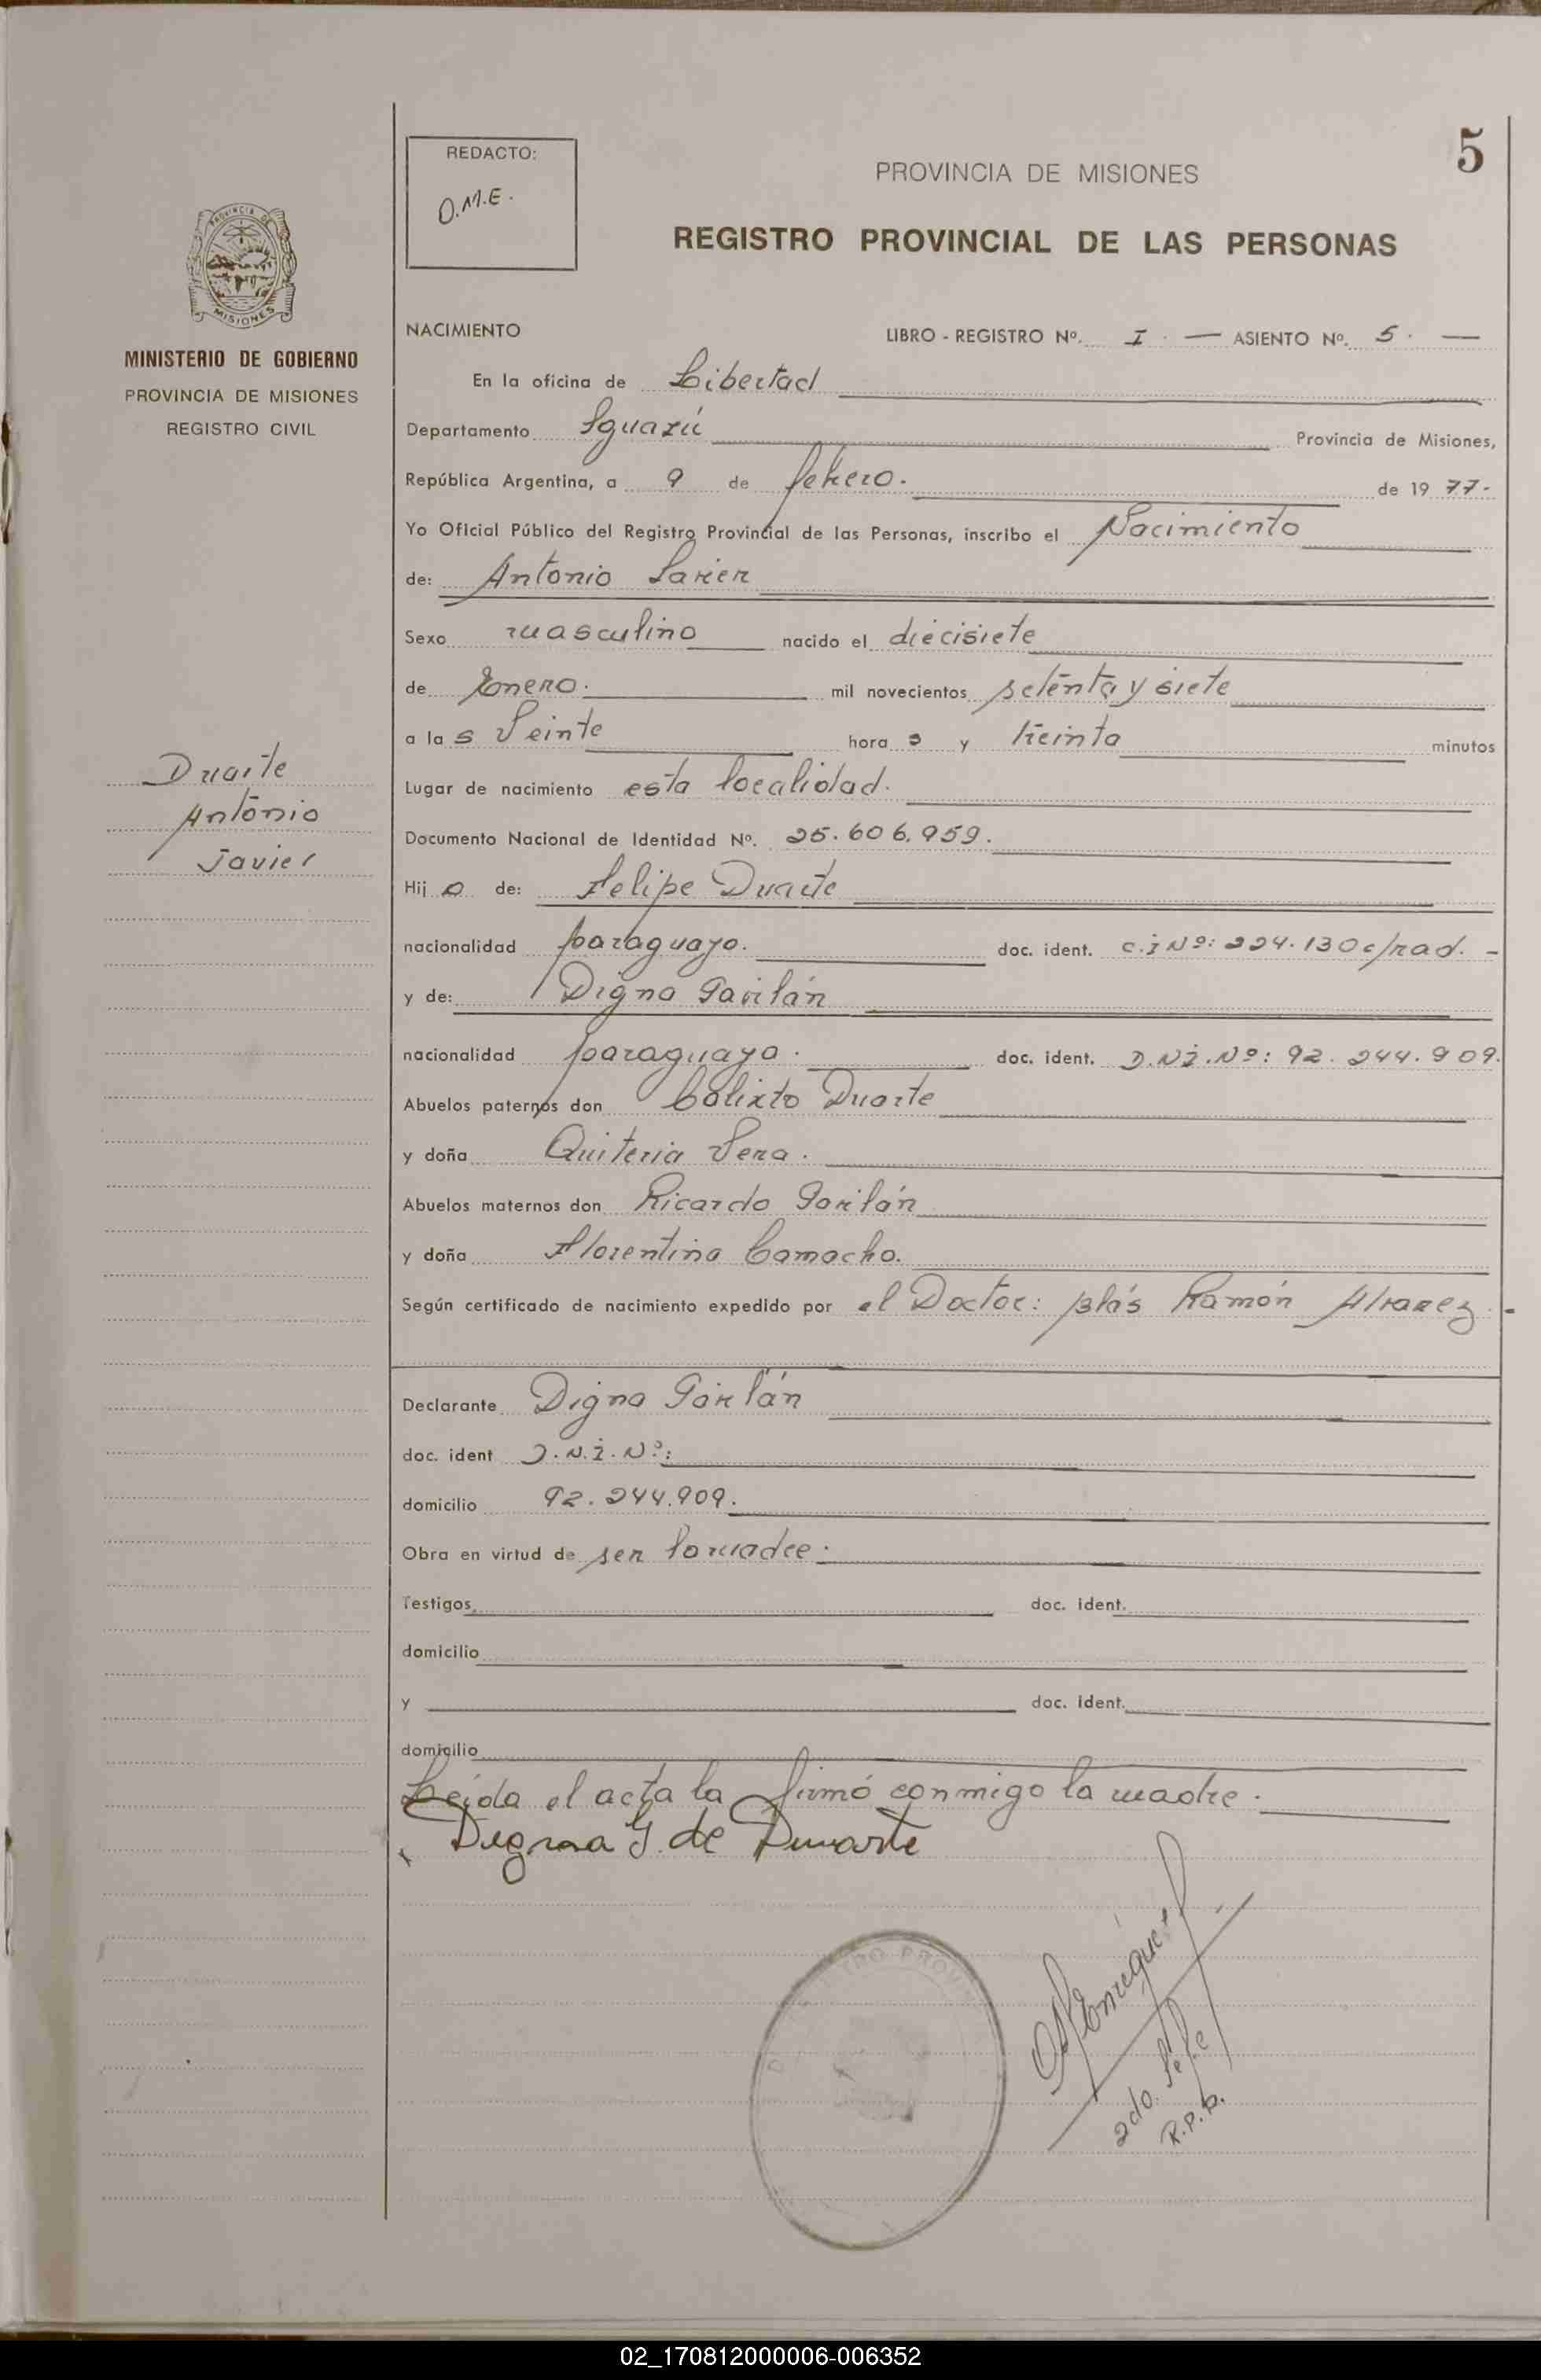 5
REDACTO:
O.M.E.
PROVINCIA DE MISIONES
REGISTRO PROVINCIAL DE LAS PERSONAS
PROVINCIA DE
MISIONES
MINISTERIO DE GOBIERNO
PROVINCIA DE MISIONES
REGISTRO CIVIL
Duarte
Antonio
Javier
NACIMIENTO LIBRO - REGISTRO Nº. I. — ASIENTO Nº. 5. —
En la oficina de Libertad
Departamento Iguazú Provincia de Misiones,
República Argentina, a 9 de febrero. de 1977-
Yo Oficial Público del Registro Provincial de las Personas, inscribo el Nacimiento
de: Antonio Javier
Sexo masculino nacido el diecisiete
de Enero. mil novecientos setenta y siete
a las Veinte horas y treinta minutos
Lugar de nacimiento esta localidad.
Documento Nacional de Identidad Nº. 25.606.959.
Hijo de: Felipe Duarte
nacionalidad paraguayo. doc. ident. C.I Nº: 224.130 c/rad. -
y de: Digna Gavilán
nacionalidad paraguaya. doc. ident. D.N.I.Nº: 92.244.909.
Abuelos paternos don Calixto Duarte
y doña Quiteria Vera.
Abuelos maternos don Ricardo Gavilán
y doña Florentina Camacho.
Según certificado de nacimiento expedido por el Doctor: Blás Ramón Alvarez. -
Declarante Digna Gavilán
doc. ident D.N.I.Nº:
domicilio 92.244.909.
Obra en virtud de ser la madre.
Testigos doc. ident.
domicilio
y doc. ident.
domicilio
Leída el acta la firmó conmigo la madre.
Digna G. de Duarte
2do. Jefe
R.P.P.
02_170812000006-006352